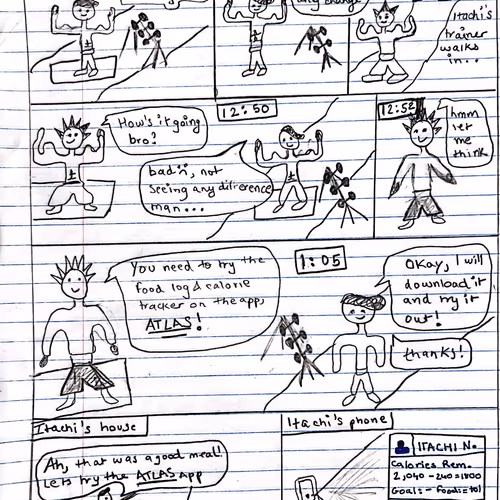 any change
Itachi's
trainer
walks
in..
12:50
12:52
How's it going
bro?
bad :(, not
seeing any difference
man...
hmm
let
me
think
1:05
You need to try the
food log & calorie
tracker on the app,
ATLAS!
Okay, I will
download it
and try it
out!
thanks!
Itachi's house
Ah, that was a good meal!
Lets try the ATLAS app
Itachi's phone
ITACHI N.
Calories Rem.
2,040 - 240 = 1800
Goal - food = tot